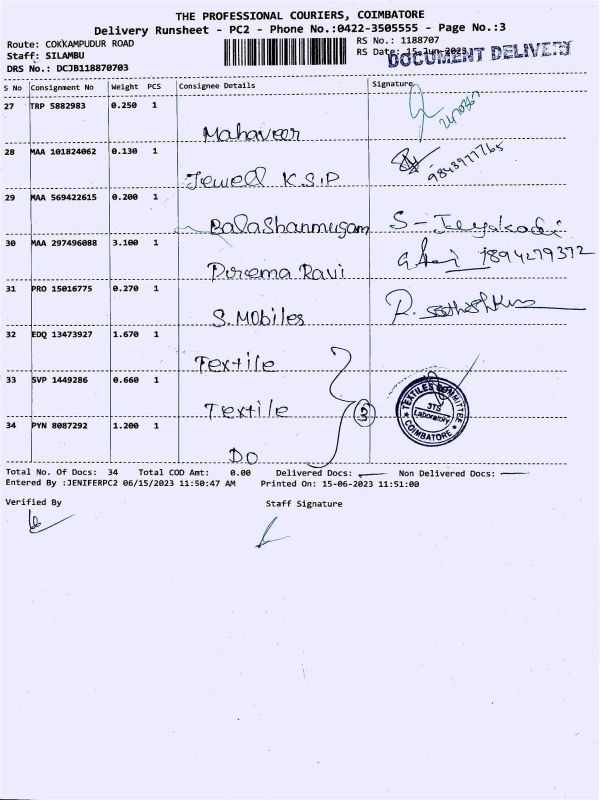 THE PROFESSIONAL COURIERS, COIMBATORE
Delivery Runsheet - PC2 - Phone No.:0422-3505555 - Page No.:3
Route: COKKAMPUDUR ROAD RS No.: 1188707
Staff: SILAMBU RS Date: 15-Jun-2023
DOCUMENT DELIVERY
DRS No.: DCJB118870703
S No Consignment No Weight PCS Consignee Details Signature
27 TRP 5882983 0.250 1
Mahaveer
28 MAA 101824062 0.130 1
Jewell K.S.I.P 9843977765
29 MAA 569422615 0.200 1
BalaShanmugam
30 MAA 297496088 3.100 1
Ravi
31 PRO 15016775 0.270 1
S. Mobiles
32 EDQ 13473927 1.670 1
Textile
33 SVP 1449286 0.660 1
Textile 3
TEXTILES COMMITTEE
3TS
Laboratory
COIMBATORE
34 PYN 8087292 1.200 1
DO
Total No. Of Docs: 34 Total COD Amt: 0.00 Delivered Docs: Non Delivered Docs:
Entered By :JENIFERPC2 06/15/2023 11:50:47 AM Printed On: 15-06-2023 11:51:00
Verified By Staff Signature